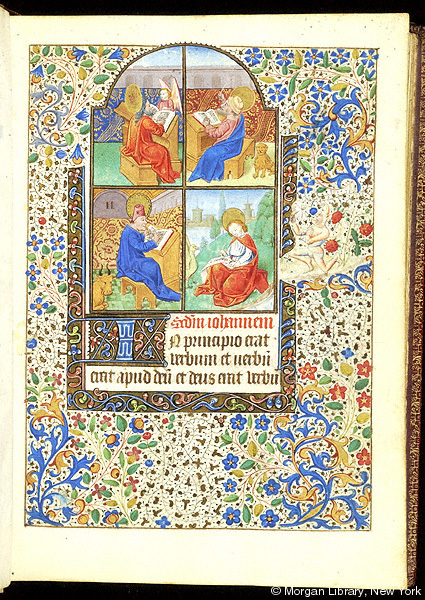 Scdm iohannem
IN principio erat
verbum et verbū
erat apud deū et deus erat verbū
© Morgan Library, New York